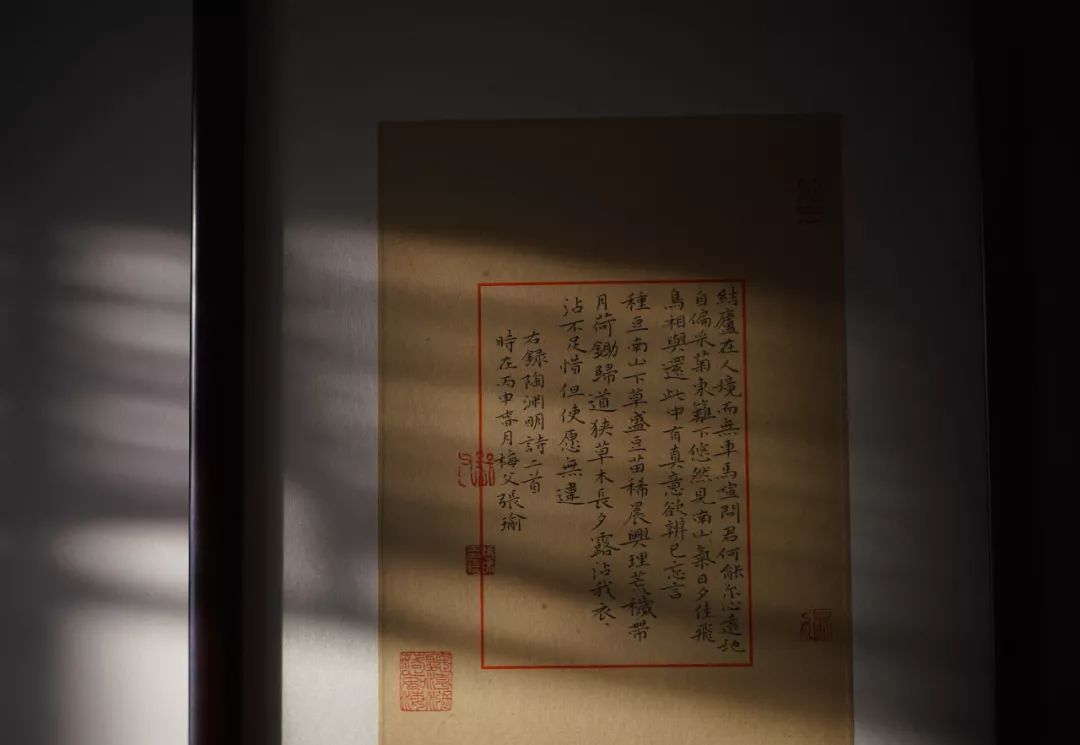 結廬在人境而無車馬喧問君何能尔心遠地
自偏采菊東籬下悠然見南山氣日夕佳飛
鳥相與還此中有真意欲辨已忘言
種豆南山下草盛豆苗稀晨興理荒穢帶
月荷鋤歸道狹草木長夕露沾我衣、
沾不足惜但使愿無違
右録陶渊明詩二首
時在丙申春月梅父張瑜